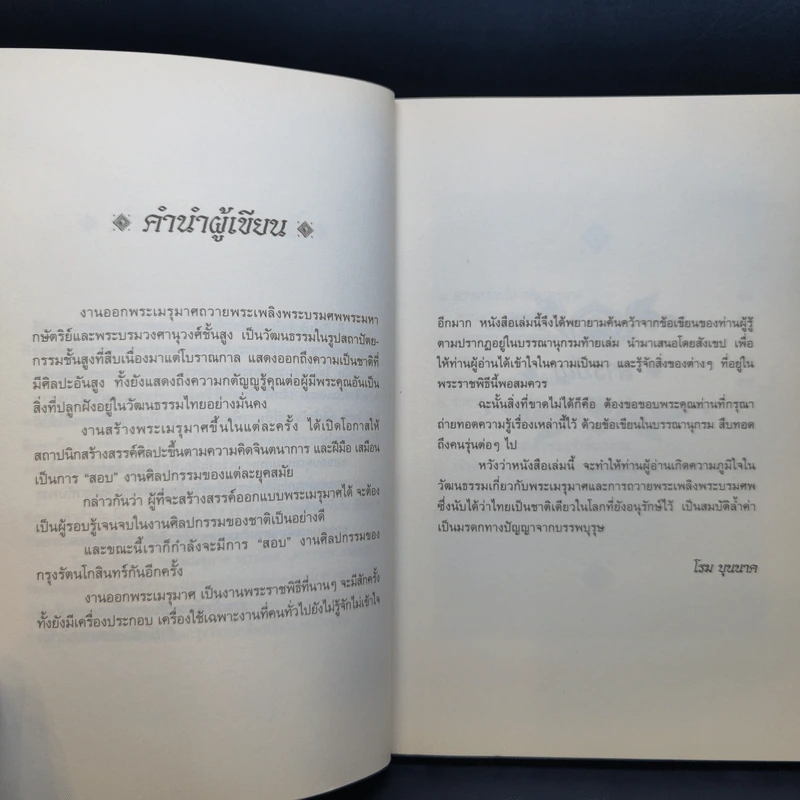 คำนำผู้เขียน
งานออกพระเมรุมาศถวายพระเพลิงพระบรมศพพระมหา
กษัตริย์และพระบรมวงศานุวงศ์ชั้นสูง เป็นวัฒนธรรมในรูปสถาปัตย-
กรรมชั้นสูงที่สืบเนื่องมาแต่โบราณกาล แสดงออกถึงความเป็นชาติที่
มีศิลปะอันสูง ทั้งยังแสดงถึงความกตัญญูรู้คุณต่อผู้มีพระคุณอันเป็น
สิ่งที่ปลูกฝังอยู่ในวัฒนธรรมไทยอย่างมั่นคง
งานสร้างพระเมรุมาศขึ้นในแต่ละครั้ง ได้เปิดโอกาสให้
สถาปนิกสร้างสรรค์ศิลปะขึ้นตามความคิดจินตนาการ และฝีมือ เสมือน
เป็นการ “สอบ” งานศิลปกรรมของแต่ละยุคสมัย
กล่าวกันว่า ผู้ที่จะสร้างสรรค์ออกแบบพระเมรุมาศได้ จะต้อง
เป็นผู้รอบรู้เจนจบในงานศิลปกรรมของชาติเป็นอย่างดี
และขณะนี้เราก็กำลังจะมีการ “สอบ” งานศิลปกรรมของ
กรุงรัตนโกสินทร์กันอีกครั้ง
งานออกพระเมรุมาศ เป็นงานพระราชพิธีที่นานๆ จะมีสักครั้ง
ทั้งยังมีเครื่องประกอบ เครื่องใช้เฉพาะงานที่คนทั่วไปยังไม่รู้จักไม่เข้าใจ
อีกมาก หนังสือเล่มนี้จึงได้พยายามค้นคว้าจากข้อเขียนของท่านผู้รู้
ตามปรากฏอยู่ในบรรณานุกรมท้ายเล่ม นำมาเสนอโดยสังเขป เพื่อ
ให้ท่านผู้อ่านได้เข้าใจในความเป็นมา และรู้จักสิ่งของต่างๆ ที่อยู่ใน
พระราชพิธีนี้พอสมควร
ฉะนั้นสิ่งที่ขาดไม่ได้ก็คือ ต้องขอขอบพระคุณท่านที่กรุณา
ถ่ายทอดความรู้เรื่องเหล่านี้ไว้ ด้วยข้อเขียนในบรรณานุกรม สืบทอด
ถึงคนรุ่นต่อๆ ไป
หวังว่าหนังสือเล่มนี้ จะทำให้ท่านผู้อ่านเกิดความภูมิใจใน
วัฒนธรรมเกี่ยวกับพระเมรุมาศและการถวายพระเพลิงพระบรมศพ
ซึ่งนับได้ว่าไทยเป็นชาติเดียวในโลกที่ยังอนุรักษ์ไว้ เป็นสมบัติล้ำค่า
เป็นมรดกทางปัญญาจากบรรพบุรุษ
โรม บุนนาค